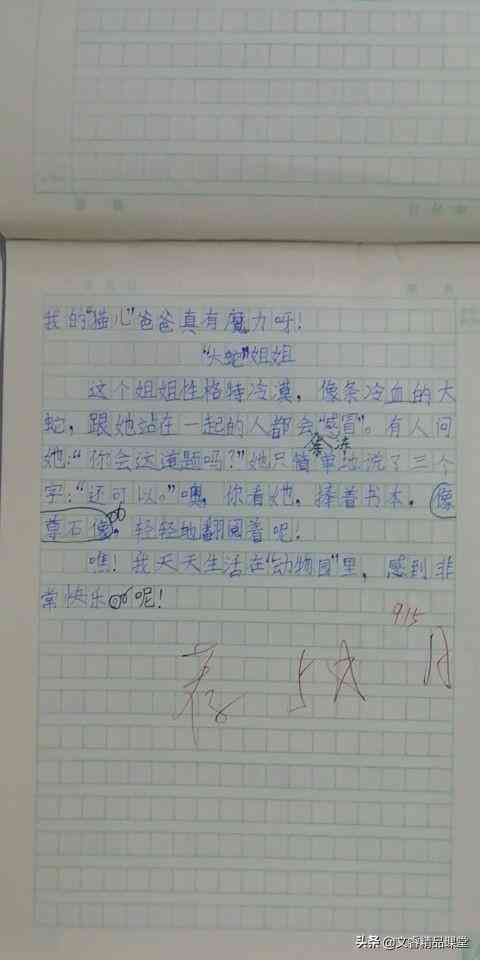 我的“猫儿”爸爸真有魔力呀！
“大蛇”姐姐
这个姐姐性格特冷漠，像条冷血的大
蛇，跟她站在一起的人都会“感冒”。有人问
她：“你会这道题吗？”她只简单地说了三个
字：“还可以。”噢，你看她，捧着书本，像
尊石像，轻轻地翻阅着呢！
瞧！我天天生活在“动物园”里，感到非
常快乐呢！
915
头条@文睿精品课堂